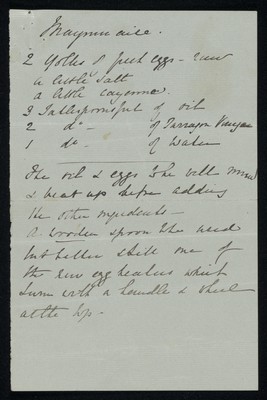 Mayonnaise.
2 Yolks of fresh eggs - raw
a little salt
a little cayenne.
3 Tablespoonsful of oil
2 do - of Tarragon Vinegar
1 do - of Water
The oil & eggs to be well mixed
& beat up before adding
the other ingredients -
A wooden spoon to be used
but better still one of
the new egg beaters which
turn with a handle & wheel
at the top -